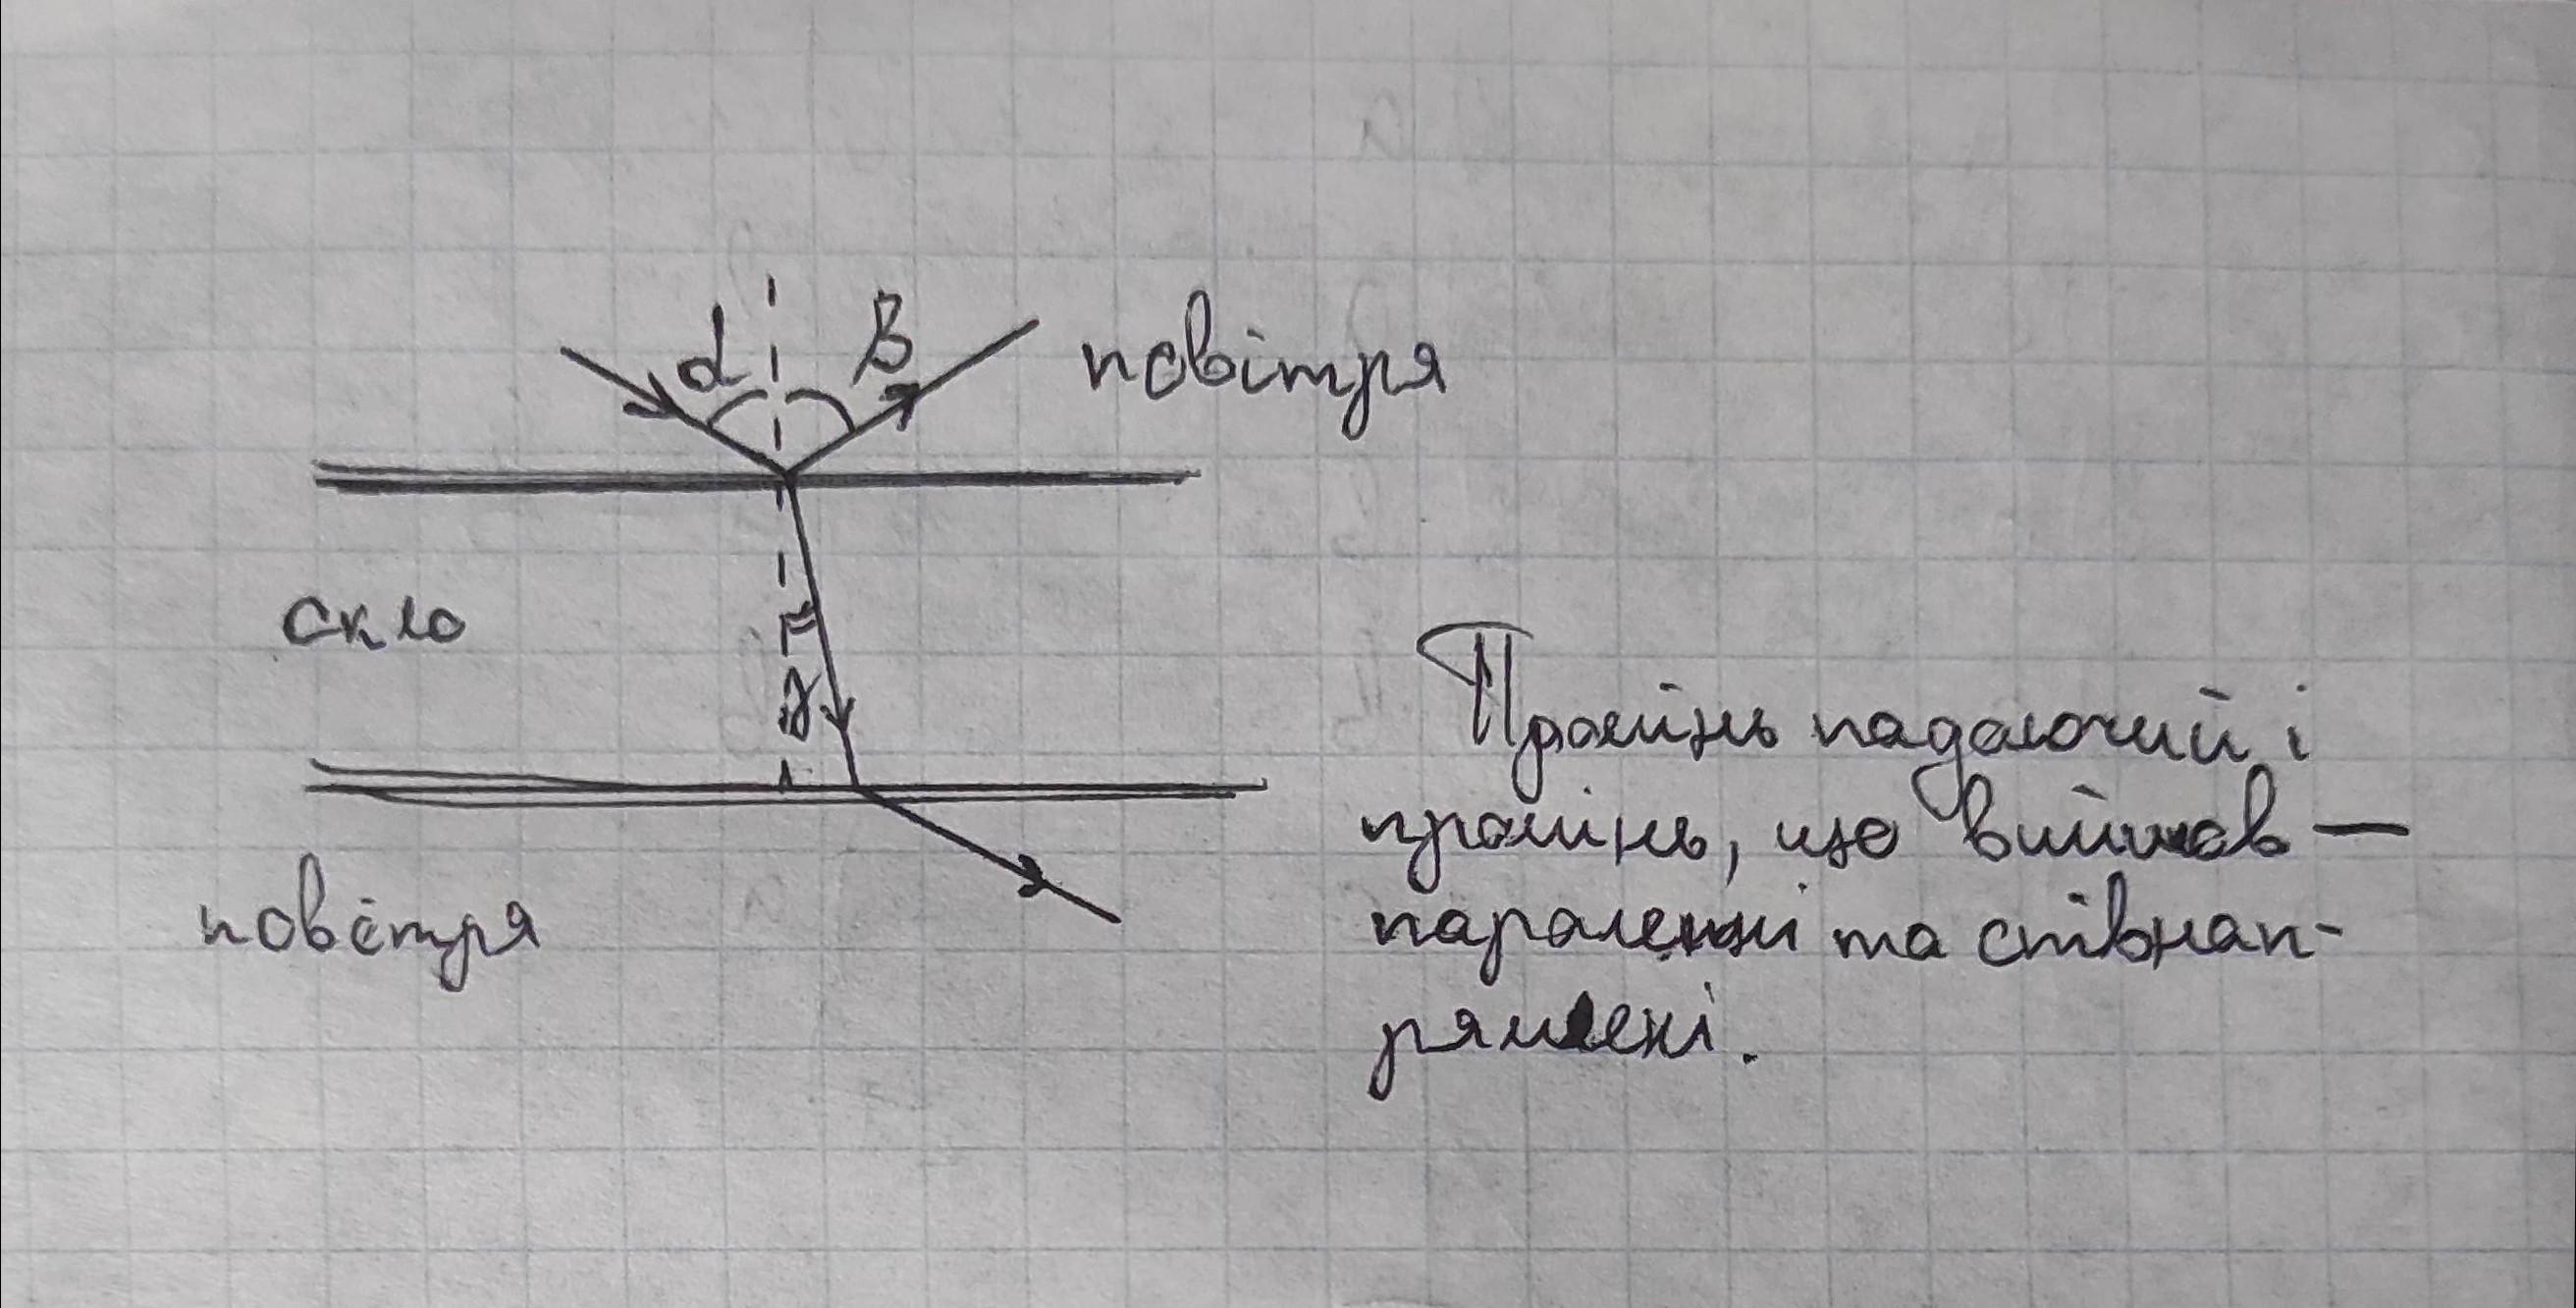 α β повітря
скло
γ
повітря
Промінь падаючий і
промінь, що вийшов —
паралельні та співнап-
рямлені.